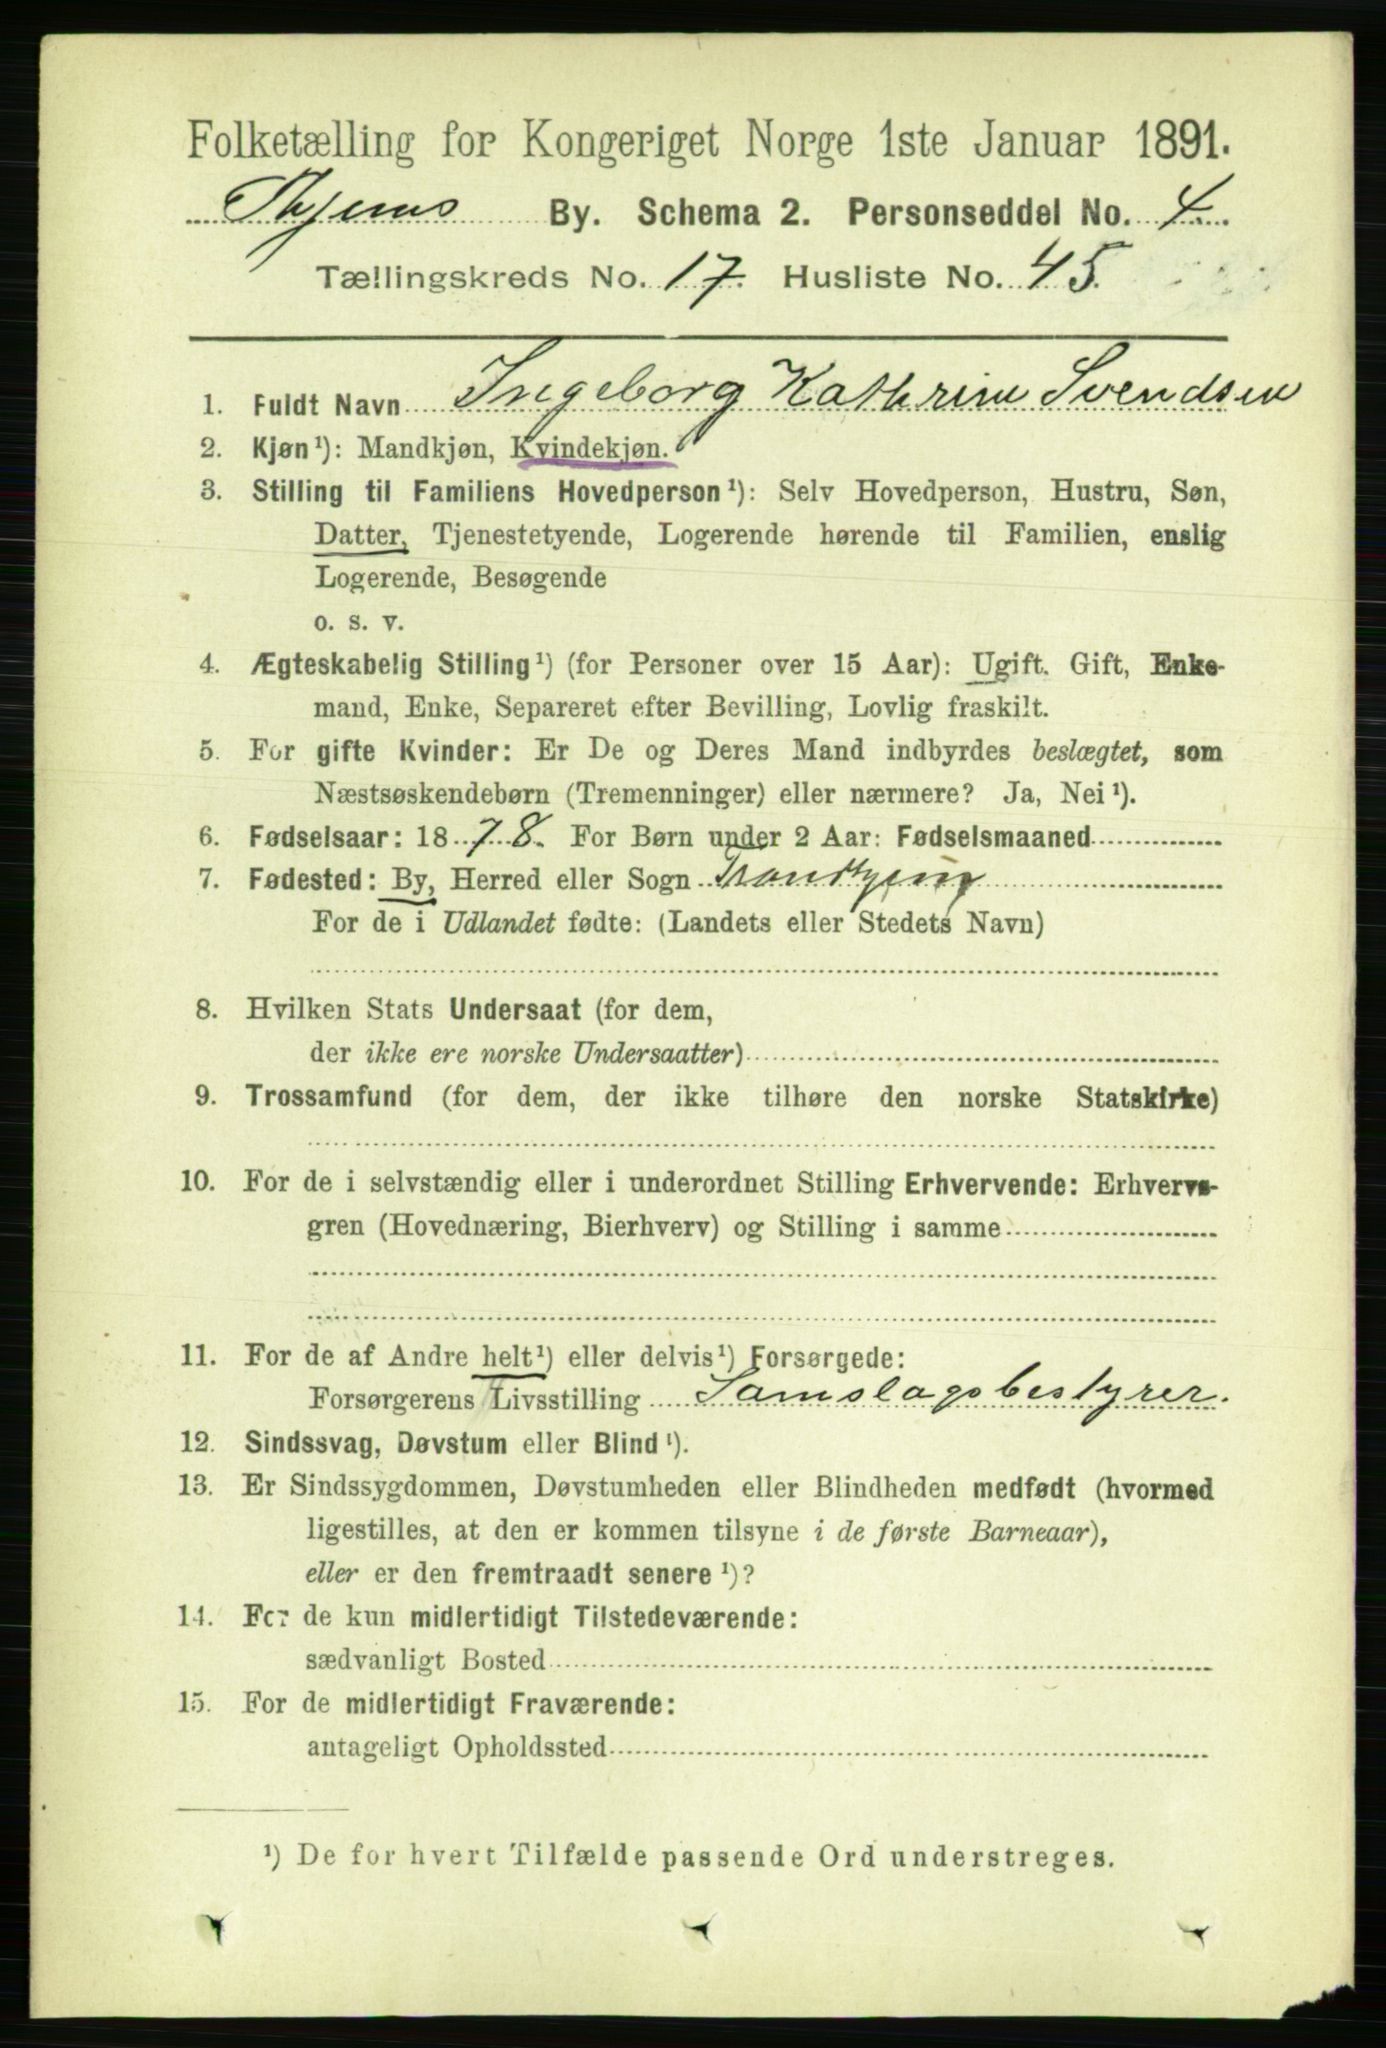 Folketælling for Kongeriget Norge 1ste Januar 1891.
Thjems By. Schema 2. Personseddel No. 4
Tællingskreds No. 17. Husliste No. 45.
1. Fuldt Navn Ingeborg Kathrine Svendsen
2. Kjøn ¹): Mandkjøn, Kvindekjøn.
3. Stilling til Familiens Hovedperson ¹): Selv Hovedperson, Hustru, Søn,
Datter, Tjenestetyende, Logerende hørende til Familien, enslig
Logerende, Besøgende
o. s. v.
4. Ægteskabelig Stilling ¹) (for Personer over 15 Aar): Ugift. Gift, Enke-
mand, Enke, Separeret efter Bevilling, Lovlig fraskilt.
5. For gifte Kvinder: Er De og Deres Mand indbyrdes beslægtet, som
Næstsøskendebørn (Tremenninger) eller nærmere? Ja, Nei ¹).
6. Fødselsaar: 1878. For Børn under 2 Aar: Fødselsmaaned
7. Fødested: By, Herred eller Sogn Trondhjem
For de i Udlandet fødte: (Landets eller Stedets Navn)
8. Hvilken Stats Undersaat (for dem,
der ikke ere norske Undersaatter)
9. Trossamfund (for dem, der ikke tilhøre den norske Statskirke)
10. For de i selvstændig eller i underordnet Stilling Erhvervende: Erhvervs-
gren (Hovednæring, Bierhverv) og Stilling i samme
11. For de af Andre helt ¹) eller delvis ¹) Forsørgede:
Forsørgerens Livsstilling Samslagsbestyrer.
12. Sindssvag, Døvstum eller Blind ¹).
13. Er Sindssygdommen, Døvstumheden eller Blindheden medfødt (hvormed
ligestilles, at den er kommen tilsyne i de første Barneaar),
eller er den fremtraadt senere ¹)?
14. For de kun midlertidigt Tilstedeværende:
sædvanligt Bosted
15. For de midlertidigt Fraværende:
antageligt Opholdssted
¹) De for hvert Tilfælde passende Ord understreges.